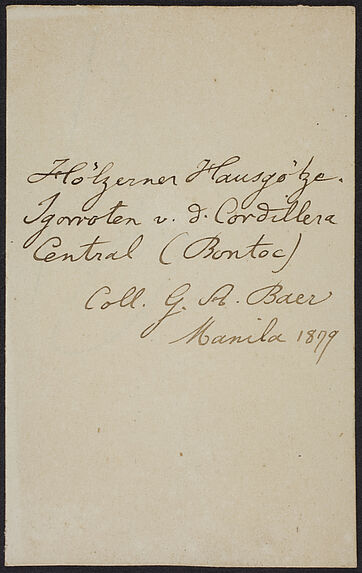 Hölzerner Hausgötze.
Igorroten v. d. Cordillera
Central (Bontoc)
Coll. G. A. Baer
Manila 1879